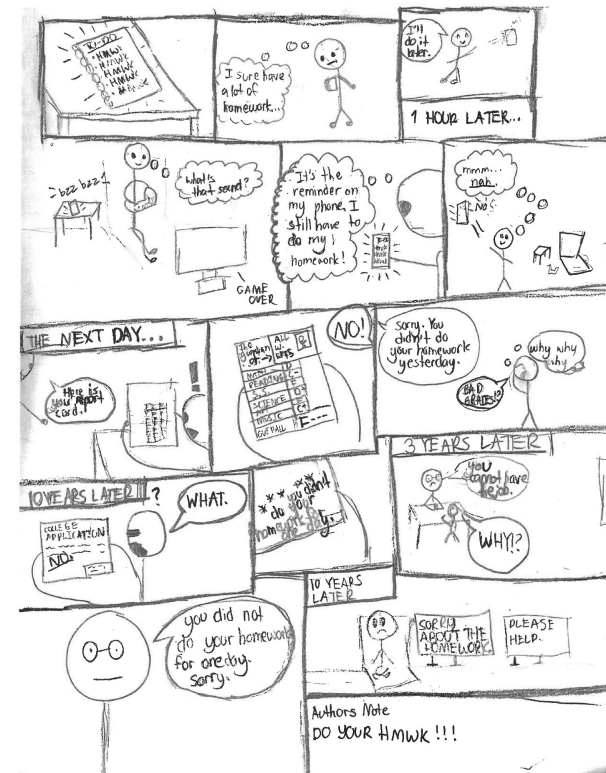 TO-DO
• HMWK
• HMWK
• HMWK
• HMWK
• HMWK
I sure have
a lot of
homework...
I'll
do it
later.
1 HOUR LATER...
bzz bzz
what is
that sound?
GAME
OVER
It's the
reminder on
my phone. I
still have to
do my
homework!
mmm...
nah.
THE NEXT DAY...
Here is
your report
card.
ALL
MATH
READING
SCIENCE
MUSIC
OVERALL
F---
NO!
sorry. You
didn't do
your homework
yesterday.
why why
why
BAD
GRADES!?
10 YEARS LATER
?
WHAT.
COLLEGE
APPLICATION
NO.
you didn't
do your
homework
one day.
3 YEARS LATER
You
cannot have
the job.
WHY!?
you did not
do your homework
for one day.
sorry.
10 YEARS
LATER
SORRY
ABOUT THE
HOMEWORK.
PLEASE
HELP.
Authors Note
DO YOUR HMWK!!!